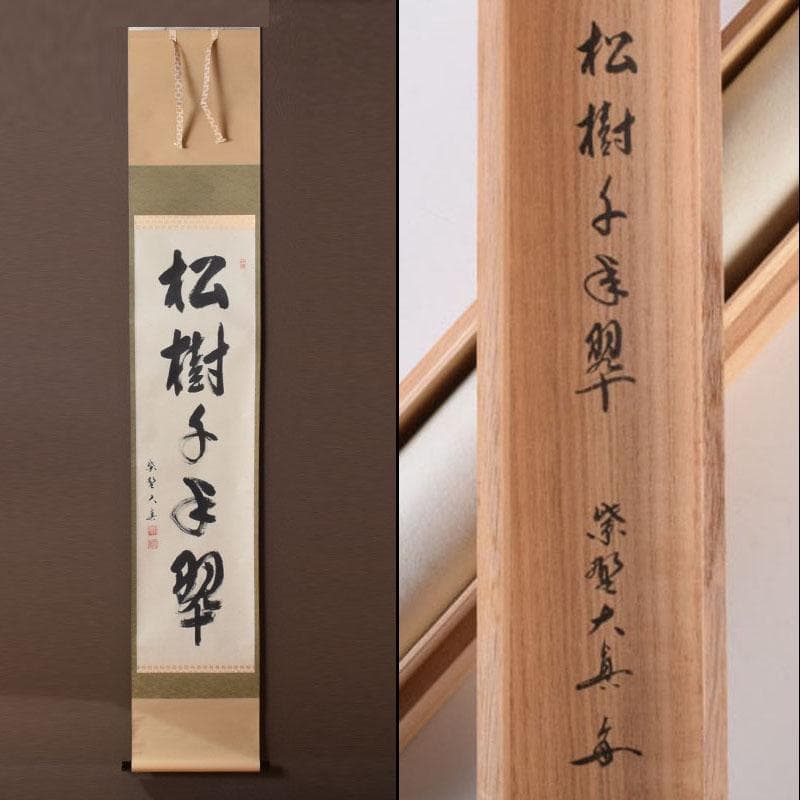 松樹千年翠
紫野大真
松樹千年翠
紫野大真書